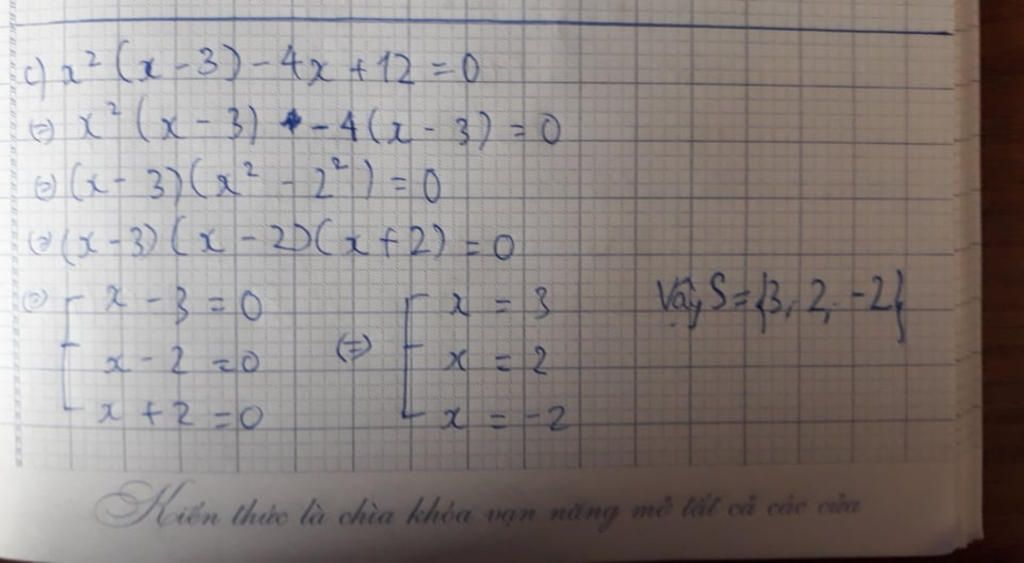 c) x² (x - 3) - 4x + 12 = 0
(=) x² (x - 3) - 4 (x - 3) = 0
(=) (x - 3) (x² - 2²) = 0
(=) (x - 3) (x - 2) (x + 2) = 0
(=) [ x - 3 = 0 (=) [ x = 3 Vậy S = {3, 2, -2}
x - 2 = 0 x = 2
x + 2 = 0 x = -2
Kiến thức là chìa khóa vạn năng mở tất cả các cửa